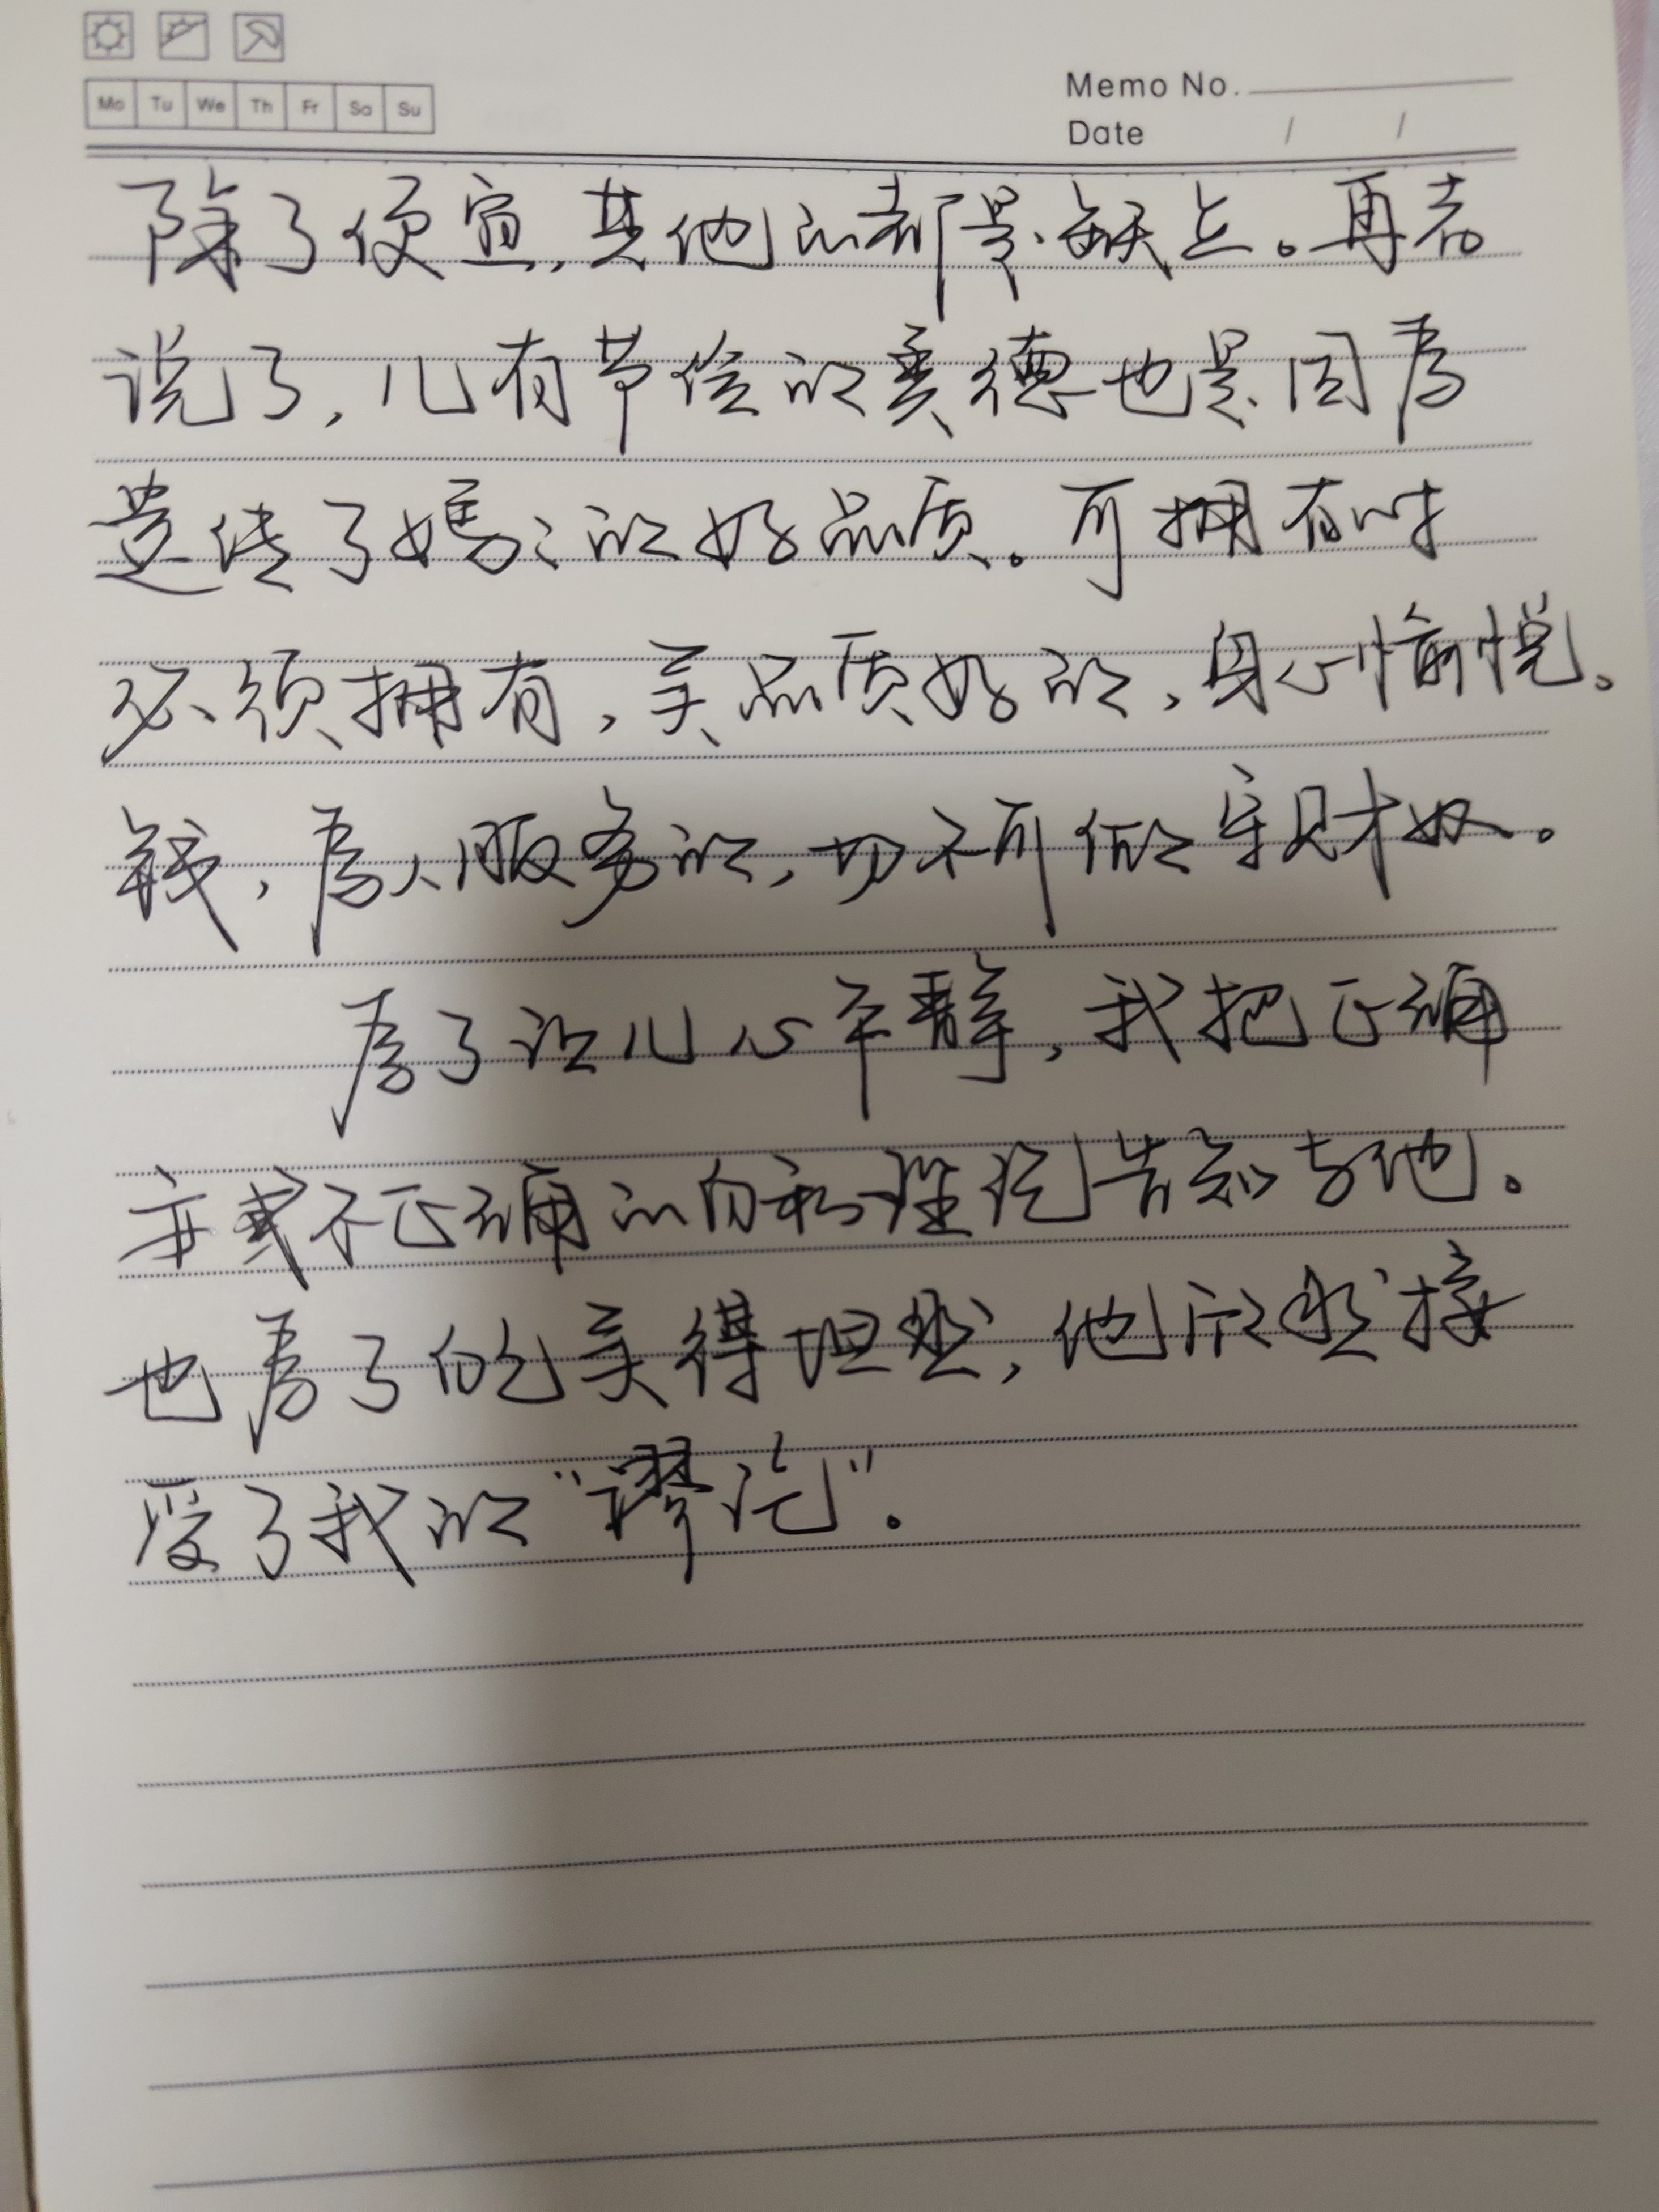 Mo Tu We Th Fr Sa Su
Memo No.
Date / /
除了便宜,其他的都是缺点。再者
说了,儿有节俭的美德也是因为
遗传了妈妈的好品质。可拥有时
必须拥有,买品质好的,身心愉悦。
钱,为人服务的,切不可做守财奴。
为了让儿心平静,我把正确
亦或不正确的自私理论告知与他。
也为了他买得坦然,他欣然接
受了我的“谬论”.